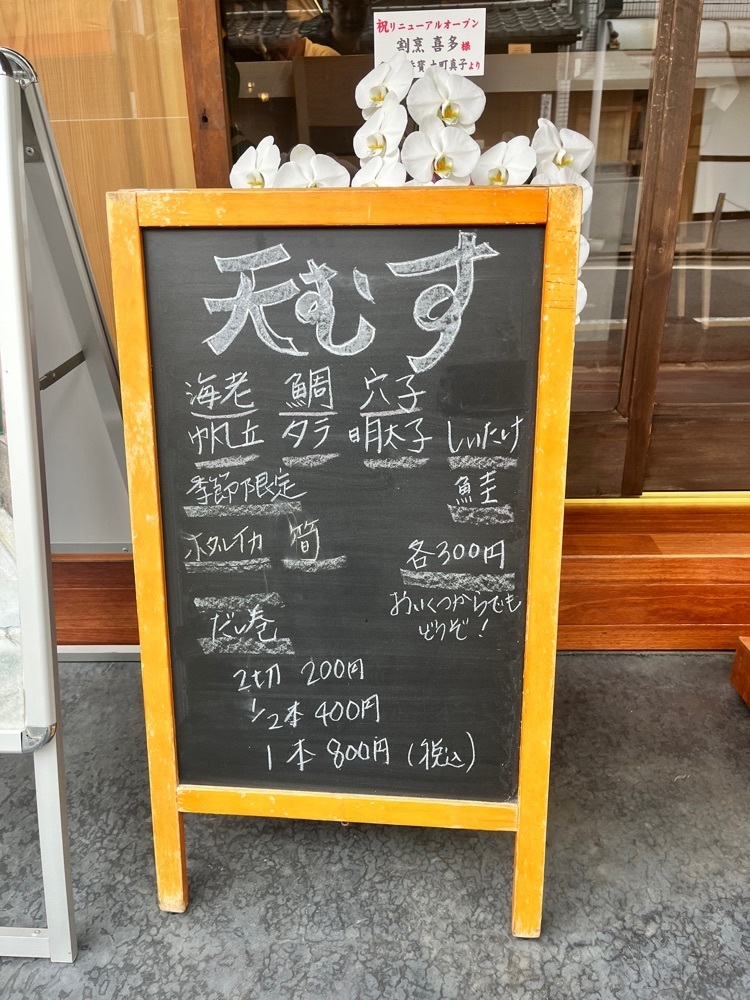 祝リニューアルオープン
割烹 喜多様
土町真子より
天むす
海老 鯛 穴子
帆立 タラ 明太子 しいたけ
季節限定 鮭
ホタルイカ 筍
各300円
おいくつからでも
どうぞ!
だし巻
2切 200円
1/2本 400円
1本 800円 (税込)